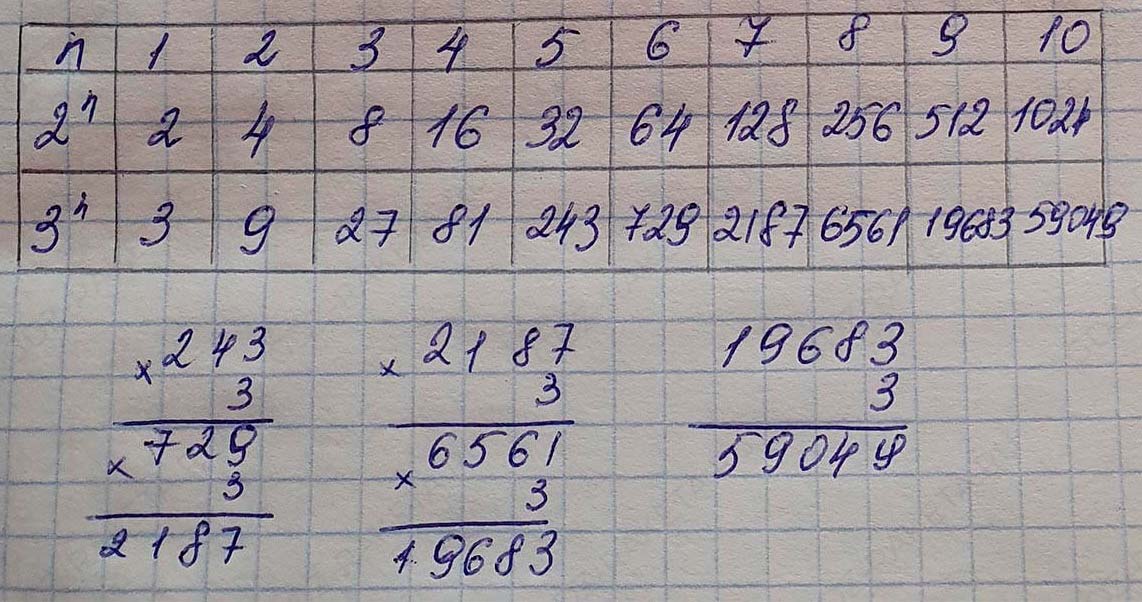 n 1 2 3 4 5 6 7 8 9 10
2ⁿ 2 4 8 16 32 64 128 256 512 1024
3ⁿ 3 9 27 81 243 729 2187 6561 19683 59049
× 243 × 2187 19683
3 3 3
× 729 × 6561 59049
3 3
2187 19683